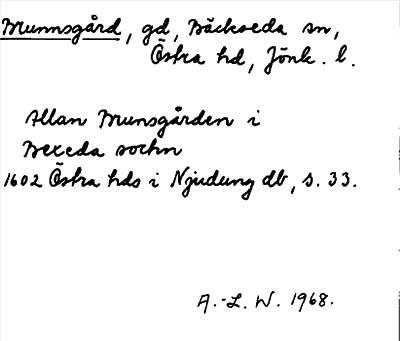 Munnsgård, gd, Bäckseda sn,
Östra hd, Jönk. l.
Allan Munsgården i
Bexeda sochn
1602 Östra hds i Njudung db, s. 33.
A.-L. W. 1968.